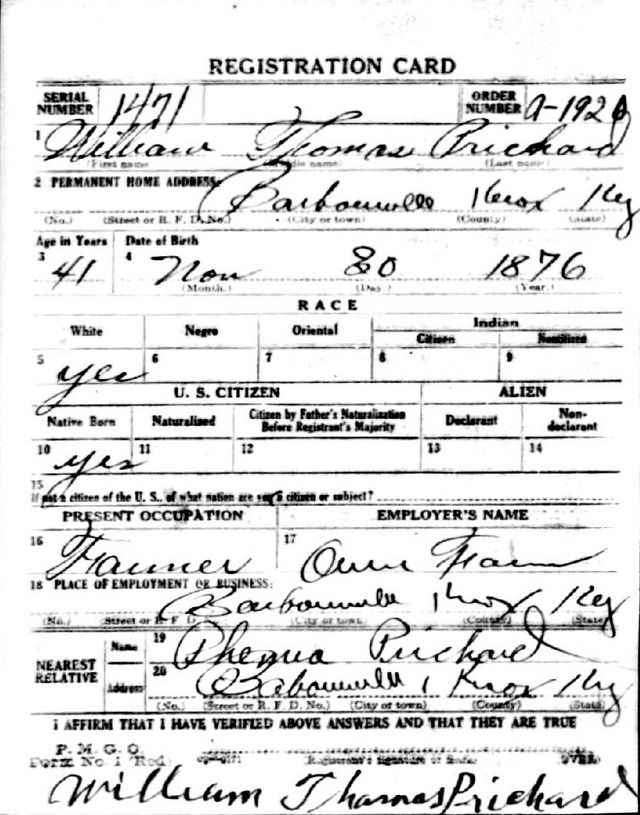 REGISTRATION CARD
SERIAL NUMBER 1471 ORDER NUMBER A-192
1 William Thomas Prichard
(First name) (Middle name) (Last name)
2 PERMANENT HOME ADDRESS: Barbourville Knox Ky
(No.) (Street or R. F. D. No.) (City or town) (County) (State)
Age in Years Date of Birth
3 41 4 Nov 1876
(Month.) (Day.) (Year.)
RACE
White Negro Oriental Indian
Citizen Noncitizen
5 yes 6 7 8 9
U. S. CITIZEN ALIEN
Native Born Naturalized Citizen by Father's Naturalization Before Registrant's Majority Declarant Non-declarant
10 yes 11 12 13 14
15
If not a citizen of the U. S., of what nation are you a citizen or subject?
PRESENT OCCUPATION EMPLOYER'S NAME
16 Farmer 17 Own Farm
18 PLACE OF EMPLOYMENT OR BUSINESS:
Barbourville Knox Ky
(No.) (Street or R. F. D. (City or town) (County) (State)
NEAREST RELATIVE Name 19 Prichard
Address 20 Barbourville Knox Ky
(No.) (Street or R. F. D. No.) (City or town) (County) (State)
I AFFIRM THAT I HAVE VERIFIED ABOVE ANSWERS AND THAT THEY ARE TRUE
P. M. G. O.
Form No. 1 (Red) (Registrant's signature or mark) (OVER)
William Thomas Prichard